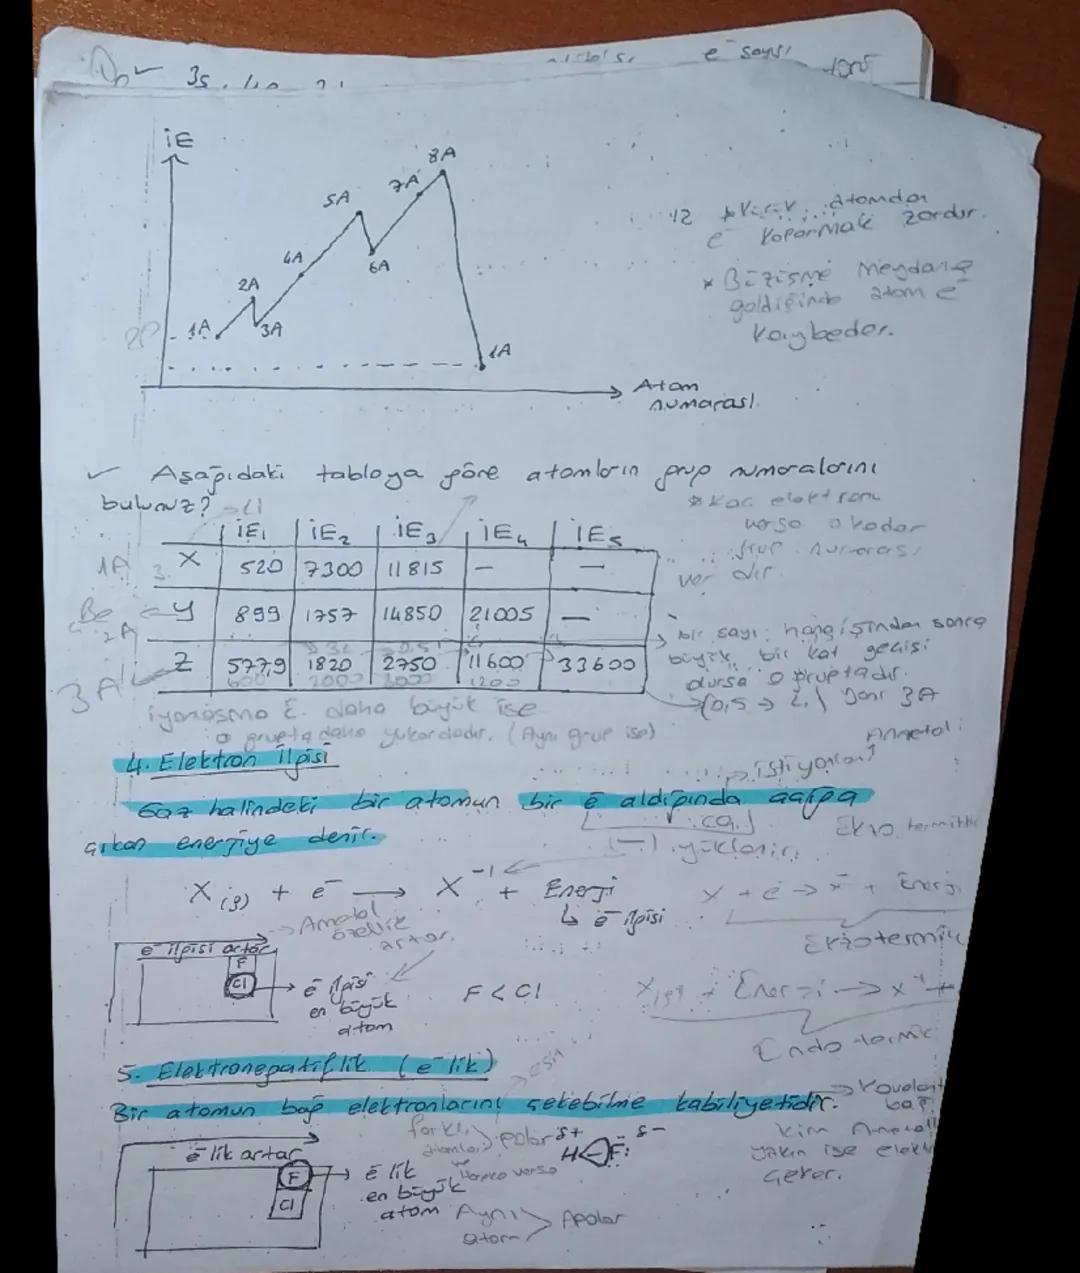 e⁻ sayısı
İE
8A
7A
5A
6A
4A
2A
3A
1A
1A
Atom
numarası
atomdan
e⁻ koparmak zordur.
* Büzüşme meydana
geldiğinde atom e⁻
kaybeder.
✓ Aşağıdaki tabloya göre atomların grup numaralarını
bulunuz?
Li
İE₁ İE₂ İE₃ İE₄ İE₅
1A 3 X 520 7300 11815 — —
Be 2A Y 899 1757 14850 21005 —
3A Z 577,9 1820 2750 11600 33600
* Kaç elektronu
varsa o kadar
grup numarası
vardır
bir sayı hangisinden sonra
büyük bir kat geçişi
olursa o gruptadır.
yani 3A
iyonlaşma E. daha büyük ise
o grupta daha yukardadır. (Aynı grup ise)
4. Elektron İlgisi
Ametal
istiyorlar
Gaz halindeki bir atomun bir e⁻ aldığında açığa
çıkan enerjiye denir.
(-) yüklenir.
X(g) + e⁻ → X⁻¹ + Enerji
↳ e⁻ ilgisi
X + e⁻ → X⁻ + Enerji
Ekzotermik
→ Ametal
özellik
artar.
e⁻ ilgisi artar
F
Cl
→ e⁻ ilgisi
en büyük
atom
F < Cl
X(g) + Enerji → X⁺¹ +
Endotermik
5. Elektronegatiflik (e⁻lik)
Bir atomun bağ elektronlarını çekebilme kabiliyetidir.
→ Kovalent
bağ
kim Ametal
yakın ise
çeker.
farklı
atomlar
polar
δ+ δ-
H F:
e⁻lik artar
F
Cl
→ e⁻lik
en büyük
atom
Aynı
atom
Apolar